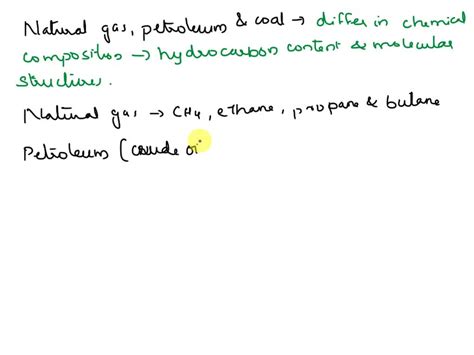 Natural gas, petroleum & coal → differ in chemical
composition → hydrocarbon content & molecular
structures.
Natural gas → CH4, ethane, propane & butane
Petroleum (crude oi